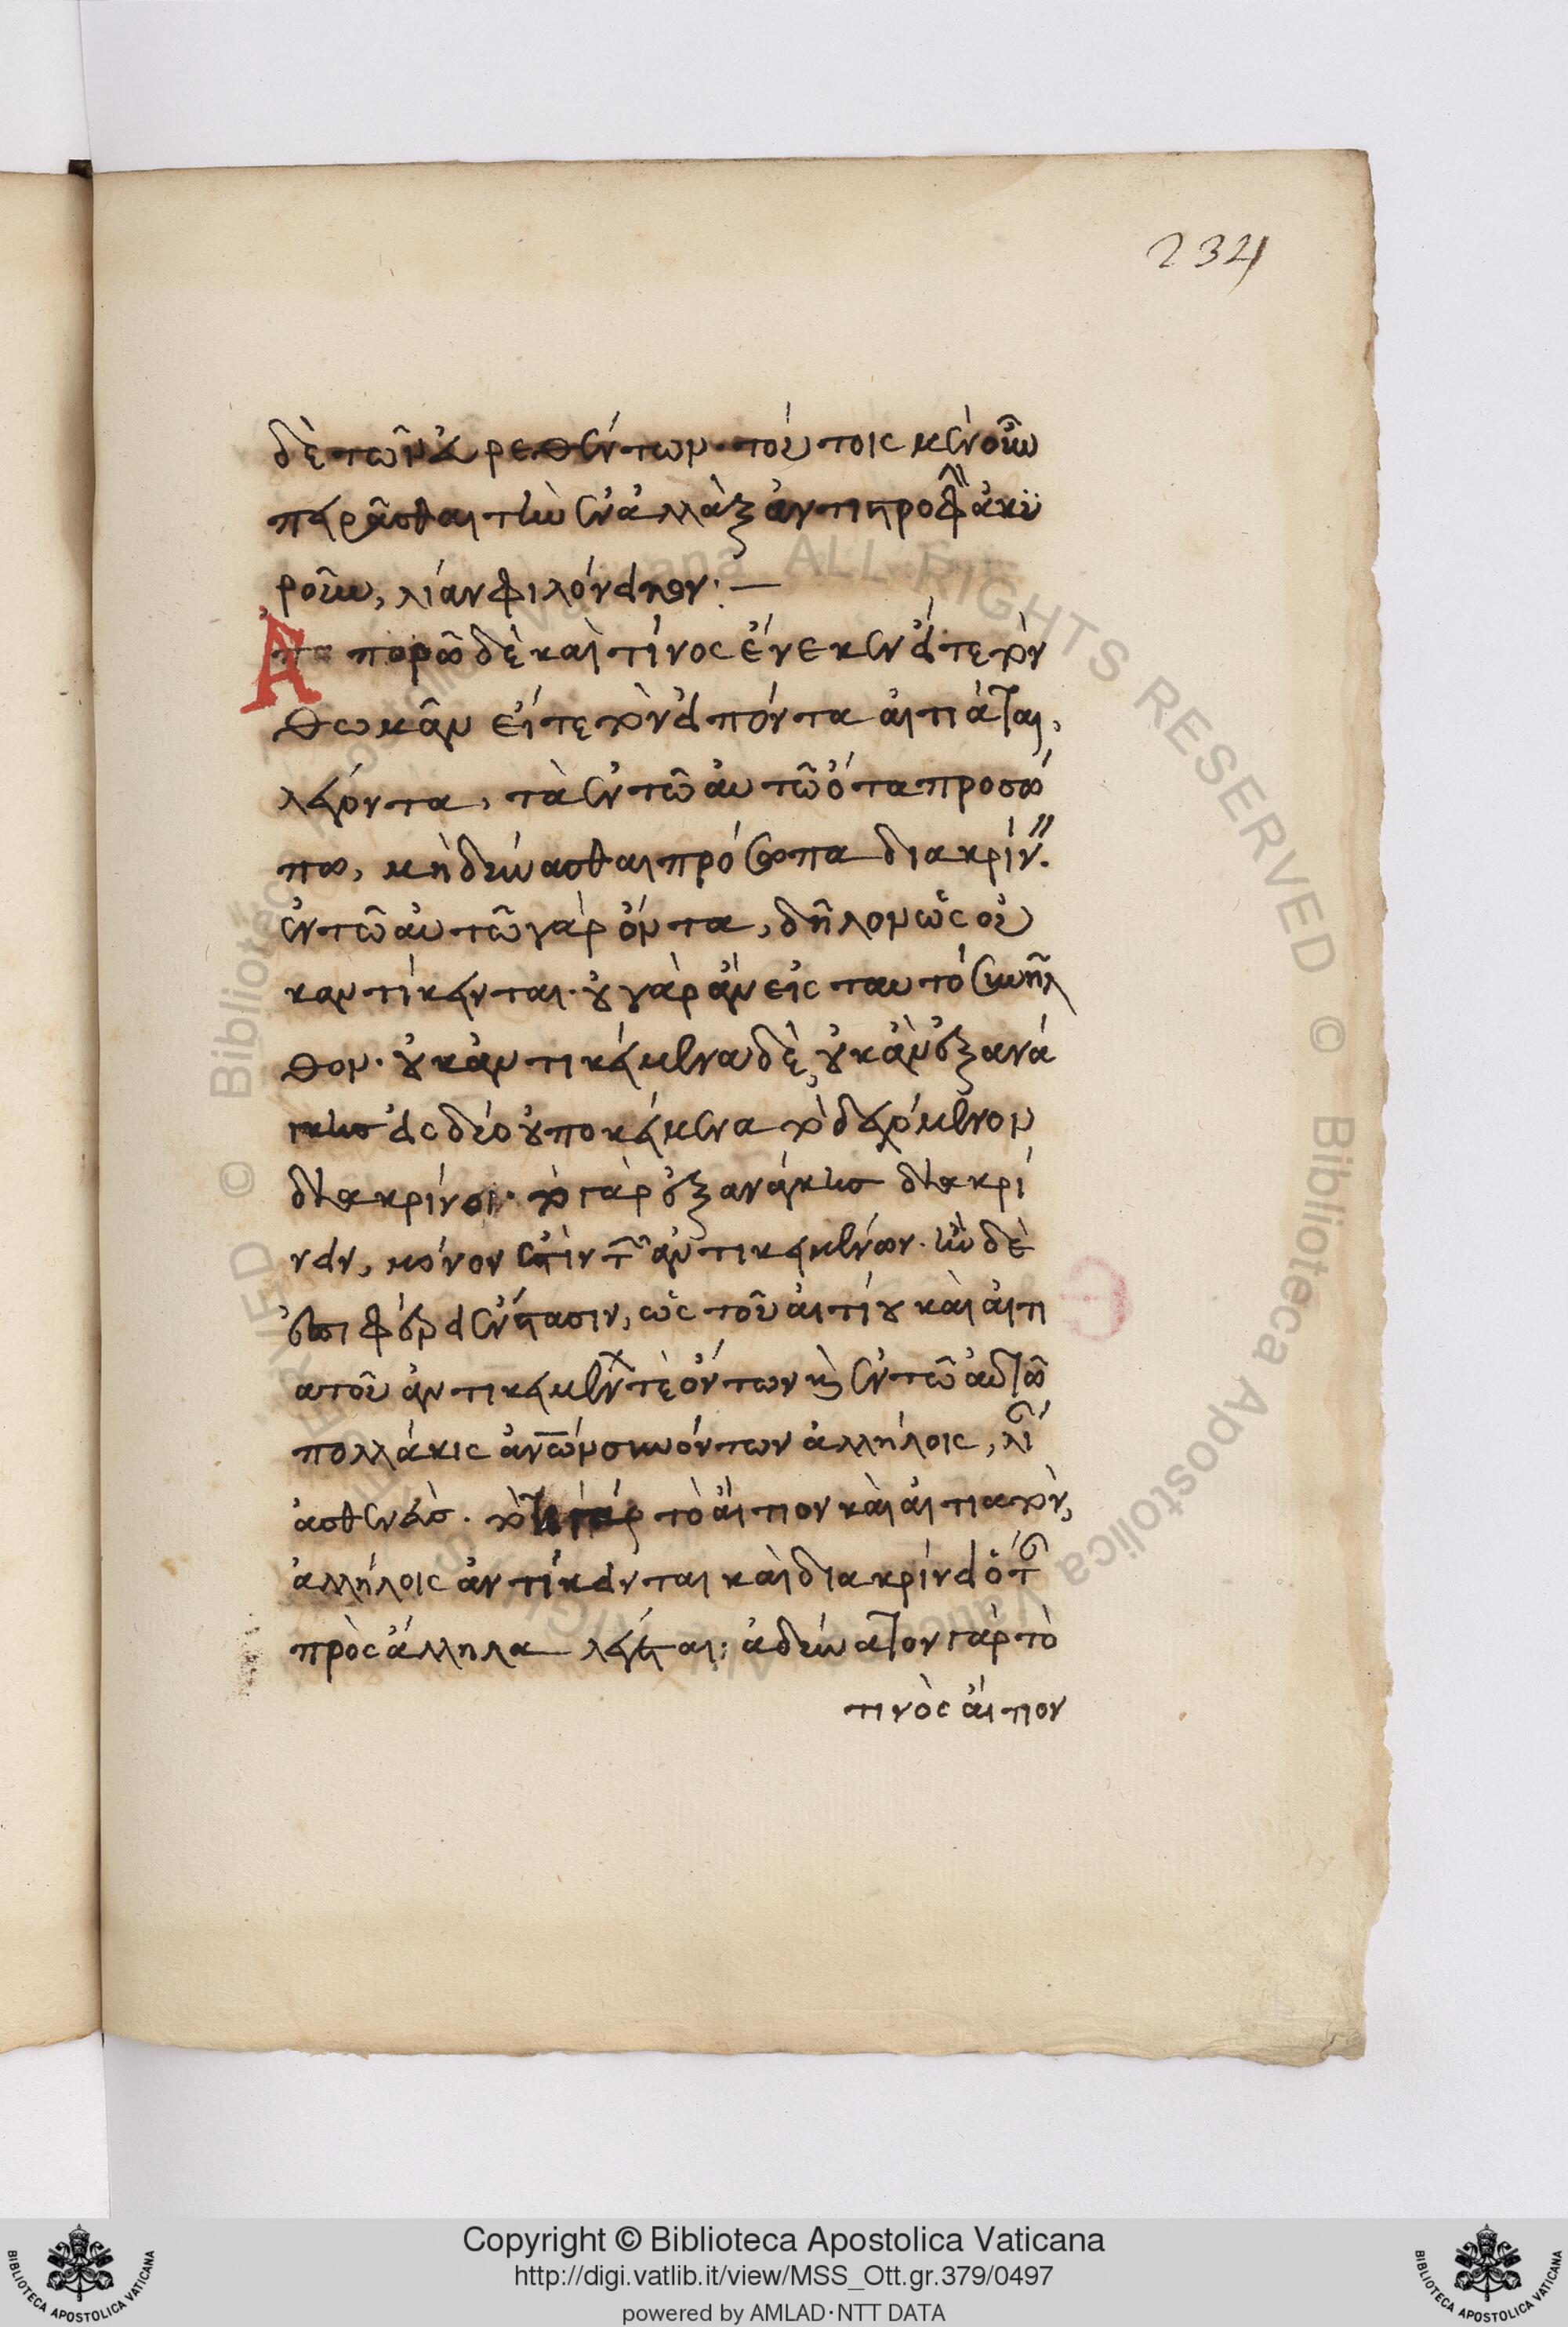 234
δὲ τῶν ῥεθέντων· τούτοις μὲν οὖν
πειρᾶσθαι τὴν ἐναλλὰξ ἀντιστροφὴν ἀκυ
ροῦν, λίαν φιλόνεικον:—
Ἀπορῶ δὲ καὶ τίνος ἕνεκεν εἴτε τὸν
Θωμᾶν εἴτε τὸν εἰπόντα αἰτιᾶται,
λέγοντα, τὰ ἐν τῷ αὐτῷ ὄντα προσώ
πω, μὴ δύνασθαι πρόσωπα διακρίνειν.
ἐν τῷ αὐτῷ γὰρ ὄντα, δῆλον ὡς οὐ
κ ἀντίκεινται· οὐ γὰρ ἂν εἰς ταυτὸ συνῆλ
θον· οὐκ ἀντικείμενα δὲ, οὐκ ἂν ἐξ ἀνά
γκης εἰς δύο ὑποκείμενα τὸ δεχόμενον
διακρίνοι· τὸ γὰρ ἐξ ἀνάγκης διακρί
νειν, μόνον ἐστὶν τῶν ἀντικειμένων· ἣν δὲ
ἐπιφέρει ἔνστασιν, ὡς τοῦ αἰτίου καὶ αἰτι
ατοῦ ἀντικειμένων τὲ ὄντων καὶ ἐν τῷ αὐτῷ
πολλάκις ἀν͞ω͞ν συνόντων ἀλλήλοις, λίαν
ἀσθενής. τὸ γὰρ τὸ αἴτιον καὶ αἰτιατὸν,
ἀλλήλοις ἀντίκεινται καὶ διακρίνει ὅταν
πρὸς ἄλληλα λέγεται: ἀδύνατον γὰρ τὸ
τινὸς αἴτιον
Copyright © Biblioteca Apostolica Vaticana
http://digi.vatlib.it/view/MSS_Ott.gr.379/0497
powered by AMLAD·NTT DATA
BIBLIOTECA APOSTOLICA VATICANA
BIBLIOTECA APOSTOLICA VATICANA